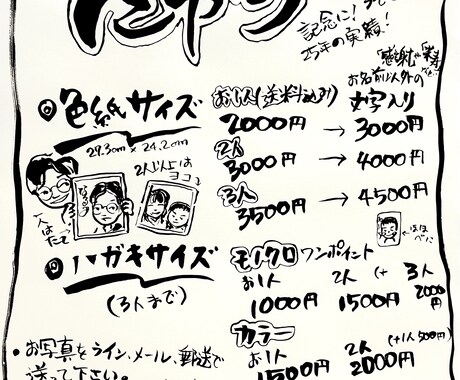 記念に!
25年の実績!
お名前以外の
文字入り
色紙サイズ
29.3cm×24.2cm
お1人(送料込み)
2000円 → 3000円
2人
3000円 → 4000円
3人
3500円 → 4500円
2人以上は
ヨコ
1人はたて
ハガキサイズ
(3人まで)
モノクロ ワンポイント
お1人 2人 3人
1000円 1500円 2000円
カラー
お1人 2人 (+1人500円)
1500円 2000円
・お写真をライン、メール、郵送で
送って下さい。